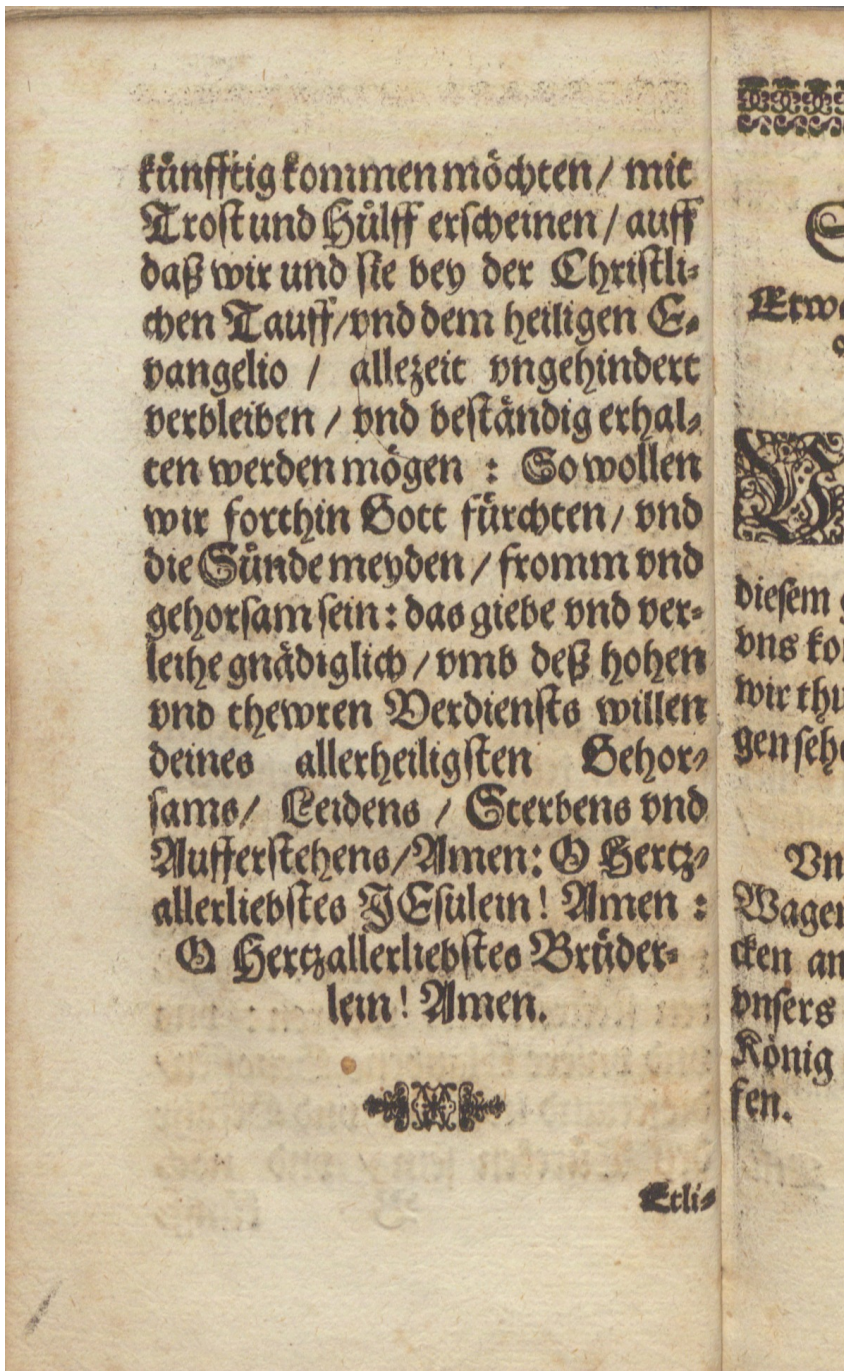 künfftig kommen möchten / mit
Trost und Hülff erscheinen / auff
daß wir und sie bey der Christli⸗
chen Tauff / vnd dem heiligen E⸗
vangelio / allezeit vngehindert
verbleiben / vnd beständig erhal⸗
ten werden mögen : So wollen
wir forthin Gott fürchten / vnd
die Sünde meyden / fromm vnd
gehorsam sein : das giebe vnd ver⸗
leihe gnädiglich / vmb deß hohen
vnd thewren Verdiensts willen
deines allerheiligsten Gehor⸗
sams / Leidens / Sterbens vnd
Aufferstehens / Amen : O Hertz⸗
allerliebstes JEsulein ! Amen :
O Hertzallerliebstes Brüder⸗
lein ! Amen.
Etli⸗
Etw
diesem
vns ko
wir thu
gen seh
Vn
Wagen
cken an
vnsers
König
fen.